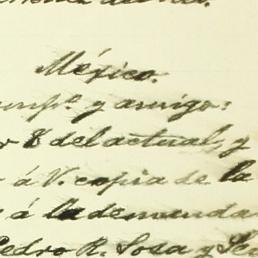 México.
y amigo:
8 del actual, y
á V. copia de la
á la demanda
Pedro R. Sosa y